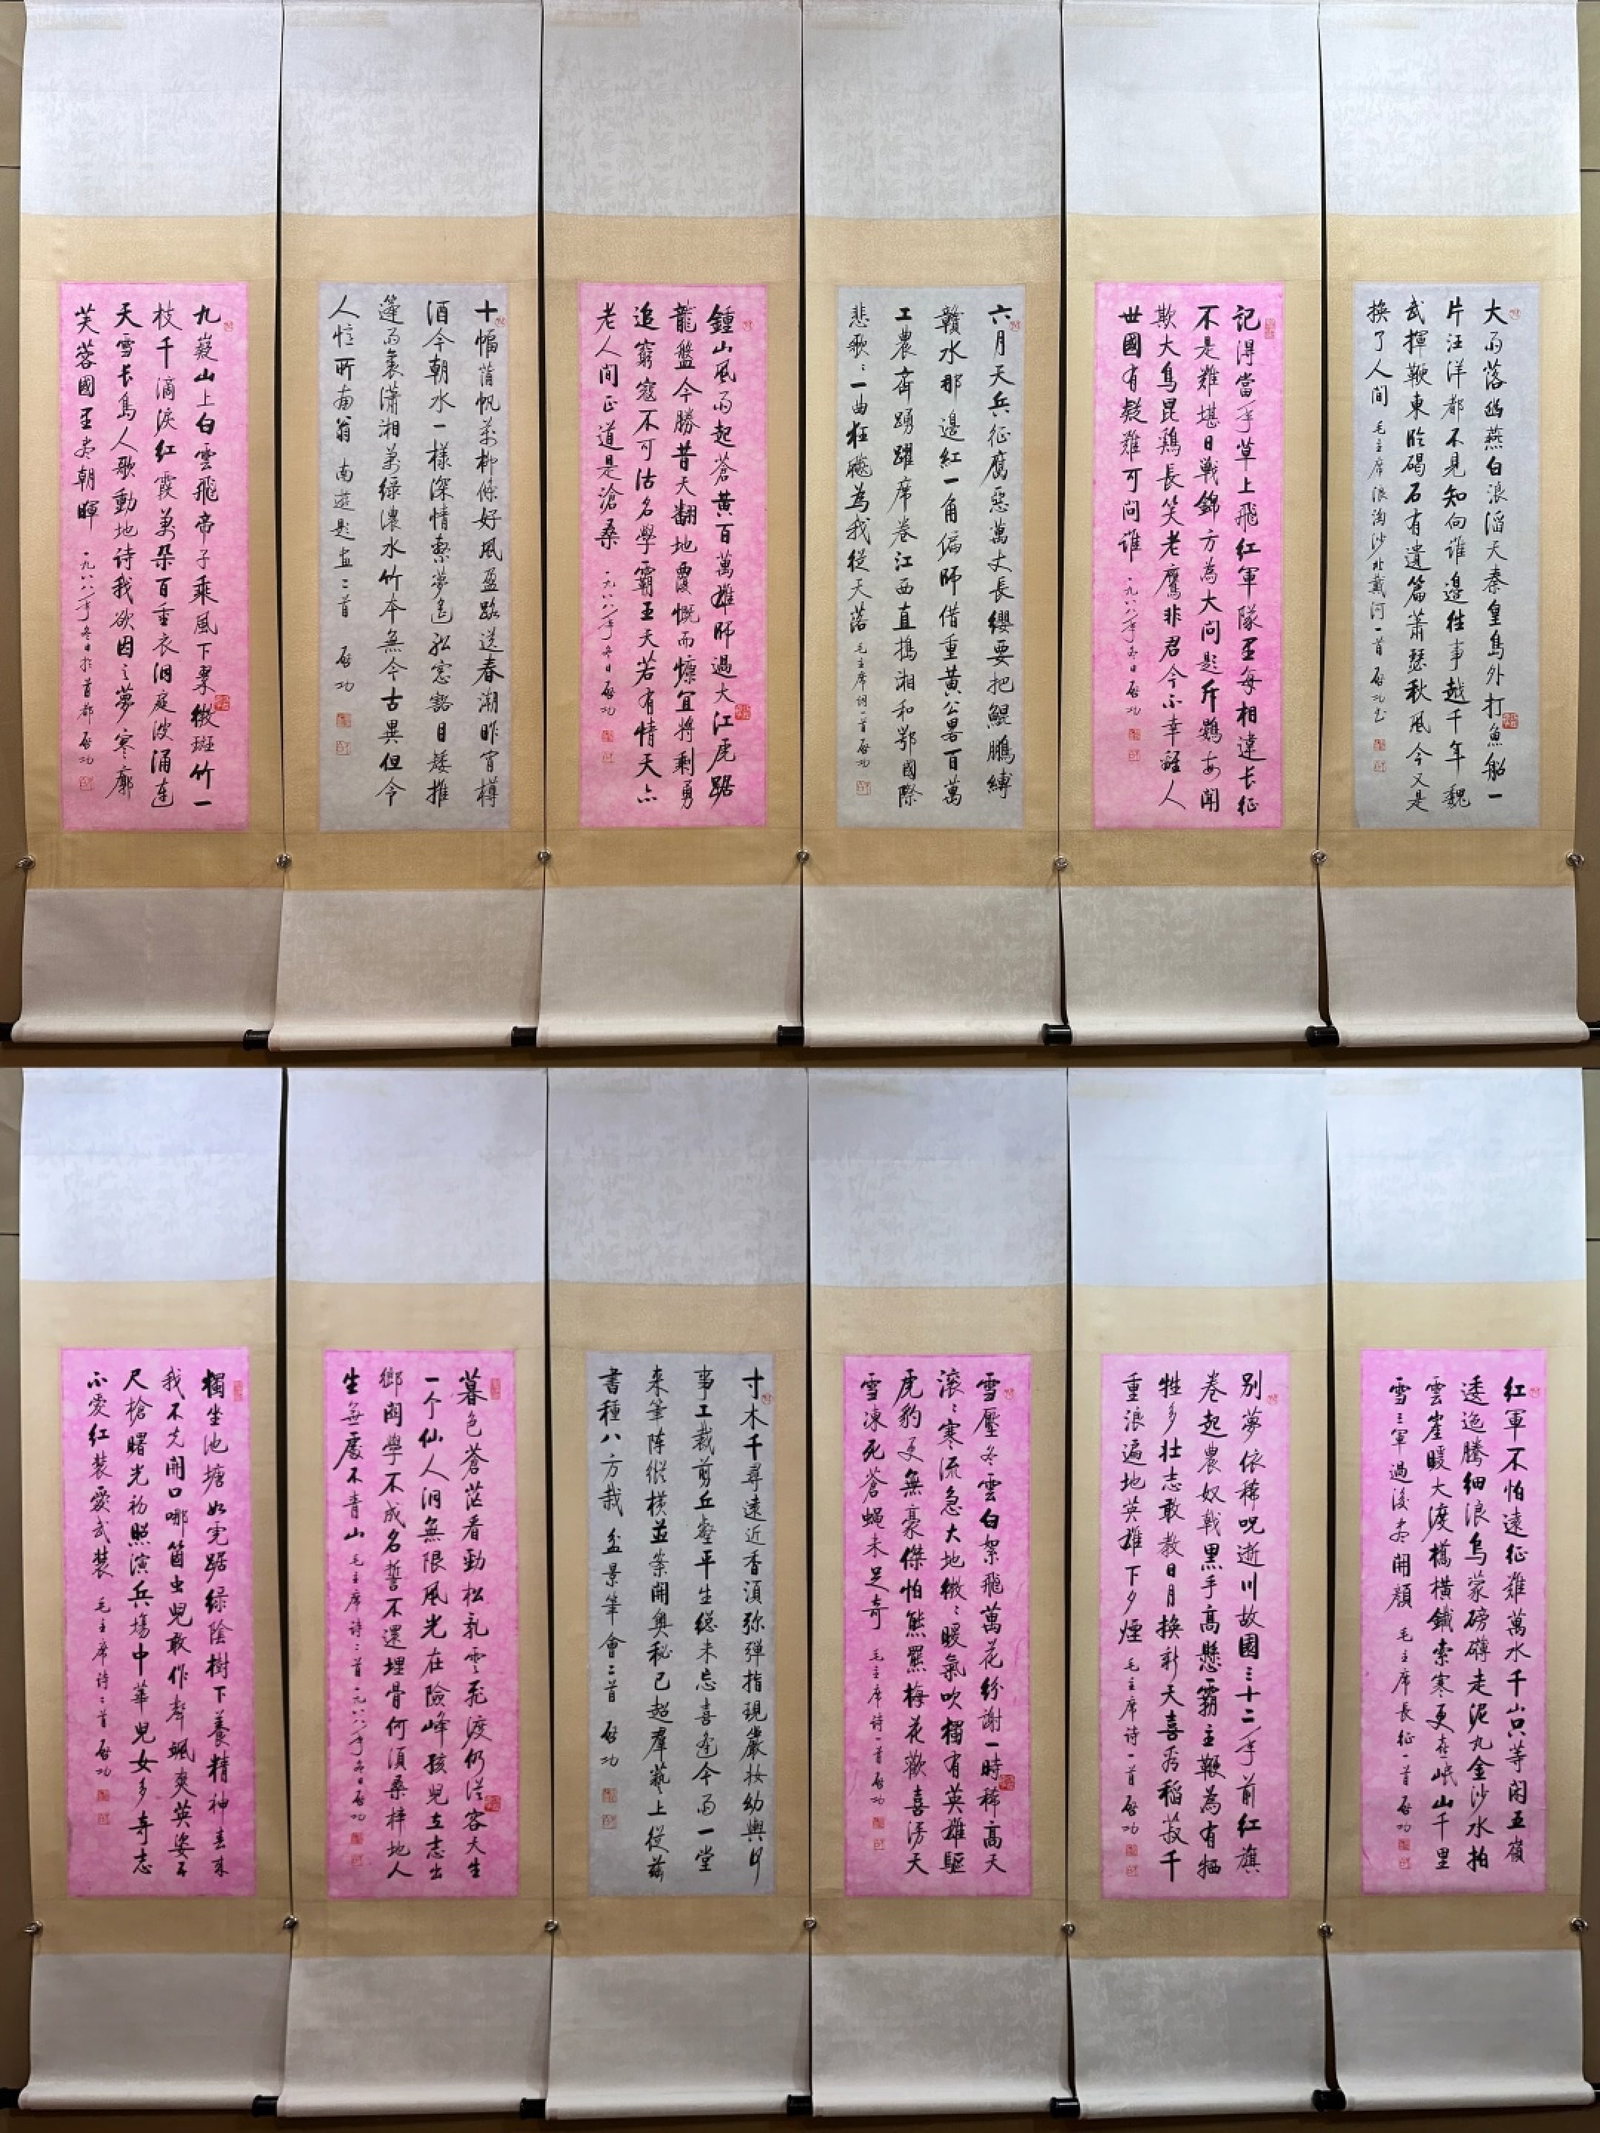 大雨落幽燕白浪滔天秦皇島外打魚船一
片汪洋都不見知向誰邊往事越千年魏
武揮鞭東臨碣石有遺篇蕭瑟秋風今又是
換了人間 毛主席浪淘沙北戴河一首 啟功書
記得當年草上飛紅軍隊里每相違長征
不是難堪日戰錦方為大問題斥鷃每聞
欺大鳥昆鷄長笑老鷹非君今不幸離人
世國有疑難可問誰 一九八八年冬日 啟功
六月天兵征腐惡萬丈長纓要把鯤鵬縛
贛水那邊紅一角偏師借重黃公畧百萬
工農齊踴躍席卷江西直搗湘和鄂國際
悲歌歌一曲狂飈為我從天落 毛主席詞一首 啟功
鍾山風雨起蒼黃百萬雄師過大江虎踞
龍盤今勝昔天翻地覆慨而慷宜將剩勇
追窮寇不可沽名學霸王天若有情天亦
老人間正道是滄桑 一九八八年冬日 啟功
十幅蒲帆萬柳條好風盈路送春潮昨宵樽
酒今朝水一樣深情繫夢遙 船窗豁目矮推
篷雨裏瀟湘萬綠濃水竹本無今古異但令
人憶所南翁 南遊題畫二首 啟功
九嶷山上白雲飛帝子乘風下翠微斑竹一
枝千滴淚紅霞萬朵百重衣洞庭波涌連
天雪長島人歌動地诗我欲因之夢寥廓
芙蓉國里盡朝暉 一九八八年冬日於首都 啟功
紅軍不怕遠征難萬水千山只等閑五嶺
逶迤騰細浪烏蒙磅礴走泥丸金沙水拍
雲崖暖大渡橋橫鐵索寒更喜岷山千里
雪三軍過後盡開顏 毛主席長征一首 啟功
別夢依稀咒逝川故園三十二年前紅旗
卷起農奴戟黑手高懸霸主鞭為有犧
牲多壯志敢教日月換新天喜看稻菽千
重浪遍地英雄下夕煙 毛主席诗一首 啟功
雪壓冬雲白絮飛萬花紛謝一時稀高天
滾滾寒流急大地微微暖氣吹獨有英雄驅
虎豹更無豪傑怕熊羆梅花歡喜漫天
雪凍死蒼蠅未足奇 毛主席诗一首 啟功
寸木千尋遠近香須弥彈指現嚴妝幼輿
事工裁剪丘壑平生總未忘喜逢今雨一堂
來筆陣縱横並案開奥秘已超羣藝上從茲
書種八方栽 盆景筆會二首 啟功
暮色蒼茫看勁松亂雲飛渡仍從容天生
一个仙人洞無限風光在險峰孩兒立志出
鄉関學不成名誓不還埋骨何須桑梓地人
生無處不青山 毛主席诗二首 一九八八年冬日 啟功
獨坐池塘如虎踞綠陰樹下養精神春來
我不先開口哪箇虫兒敢作聲颯爽英姿五
尺槍曙光初照演兵場中華兒女多奇志
不愛紅裝愛武裝 毛主席诗二首 啟功